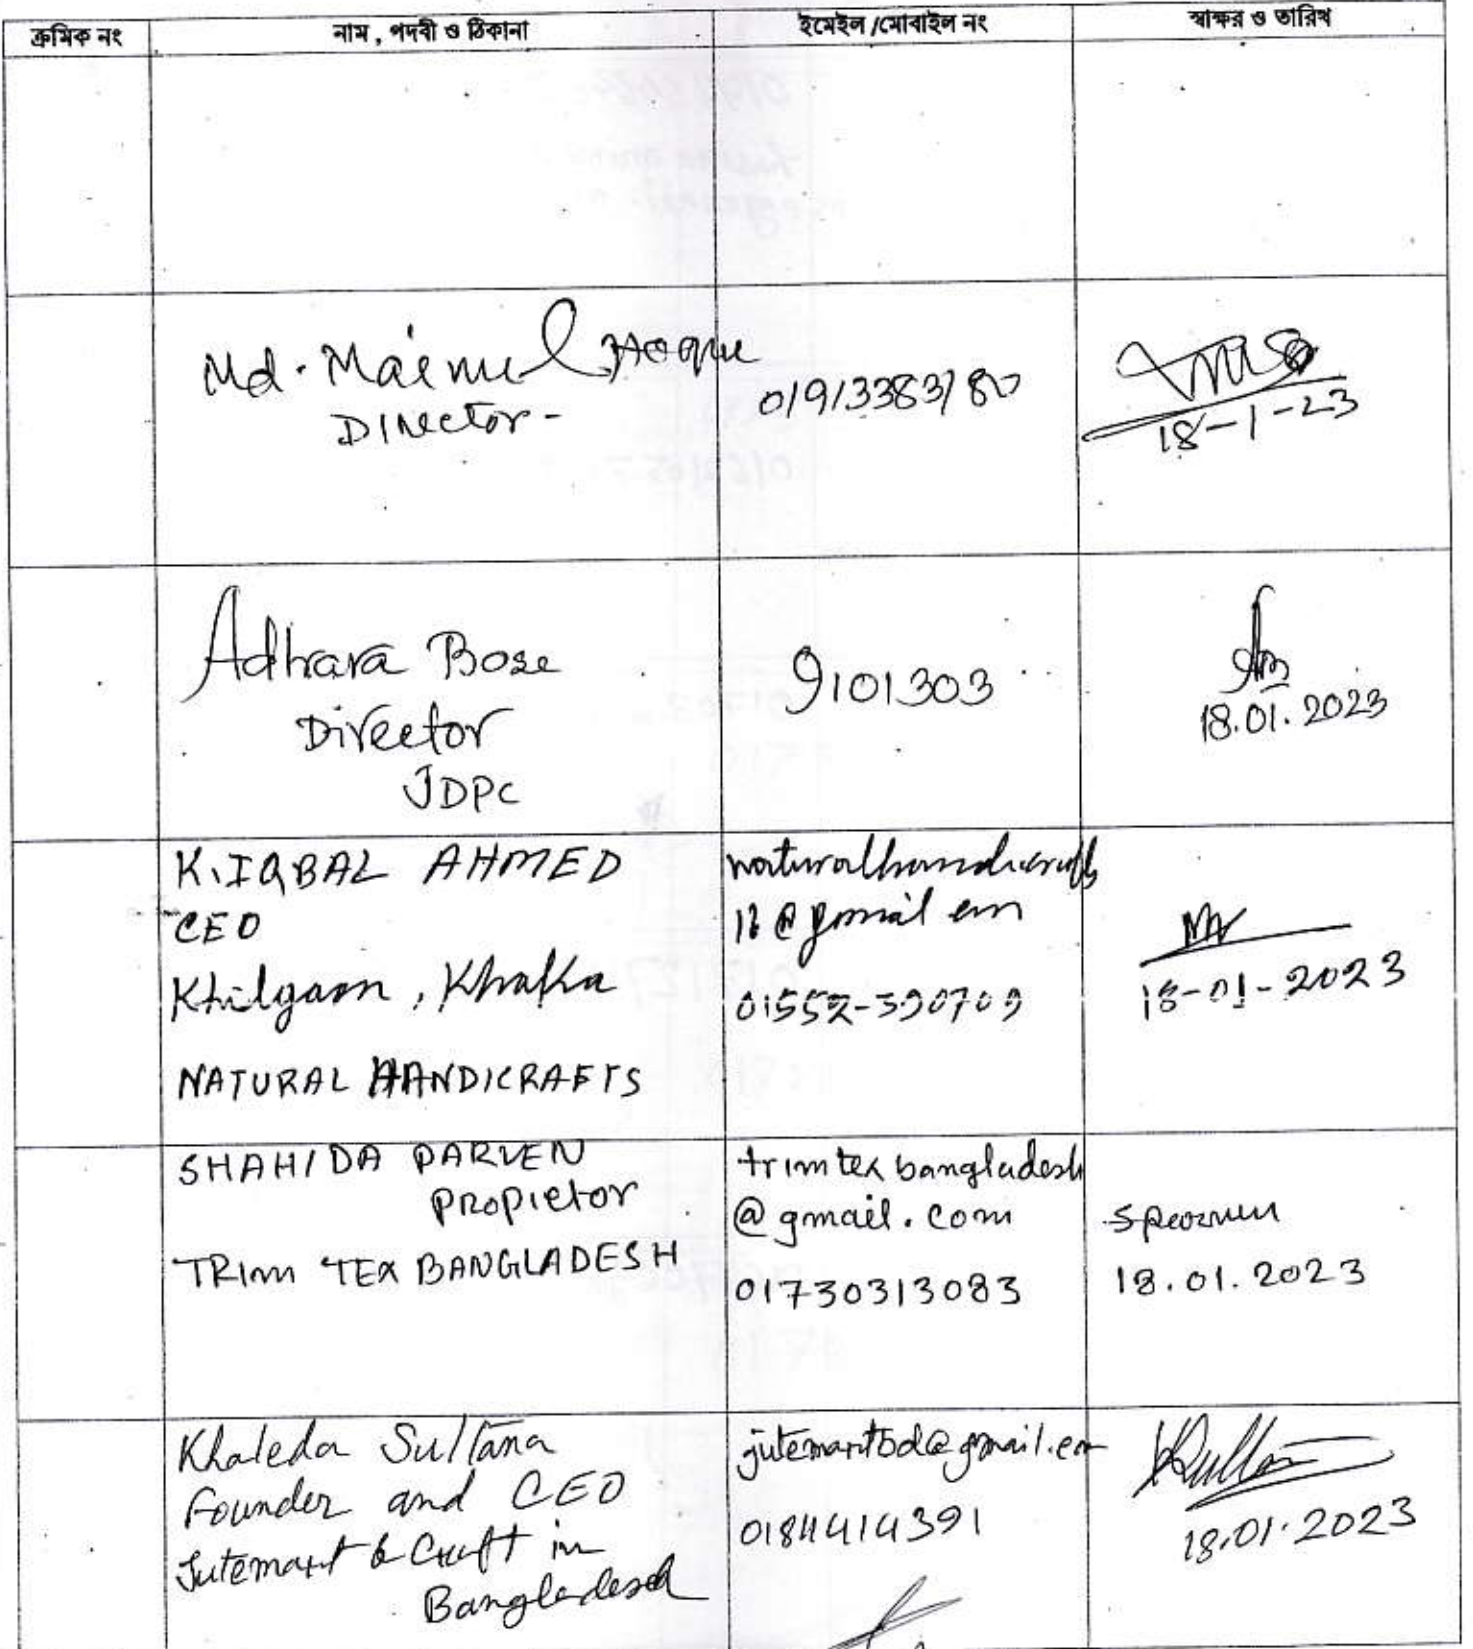 ক্রমিক নং
নাম, পদবী ও ঠিকানা
ইমেইল /মোবাইল নং
স্বাক্ষর ও তারিখ
Md. Mainul Hoque
Director-
01913383180
18-1-23
Adhara Bose
Director
JDPC
9101303
18.01.2023
K. IQBAL AHMED
CEO
Khilgaon, Khaka
NATURAL HANDICRAFTS
naturalhandicrafts
01552-390709
18-01-2023
SHAHIDA PARVEN
PROPIETOR
TRIM TEX BANGLADESH
trimtex bangladesh
@gmail.com
01730313083
18.01.2023
Khaleda Sultana
Founder and CEO
Jutemart & Craft in
Bangladesh
jutemartbd@gmail.com
0184414391
18.01.2023